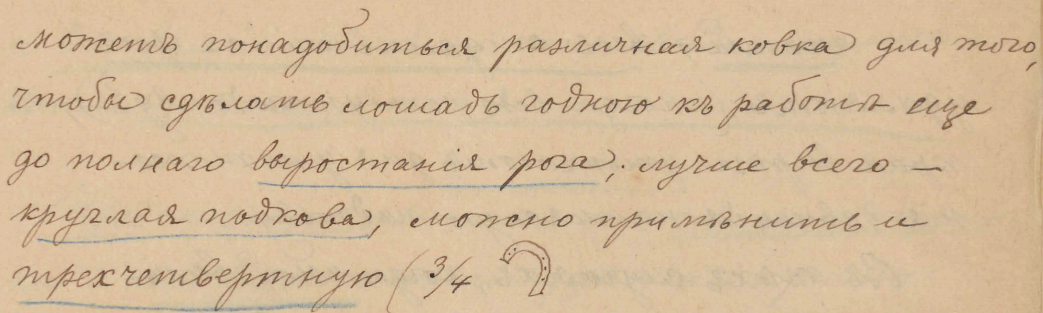 можетъ понадобиться различная ковка для того,
чтобы сдѣлать лошадь годною къ работѣ еще
до полнаго выростанія рога; лучше всего —
круглая подкова, можно примѣнить и
трехчетвертную (3/4